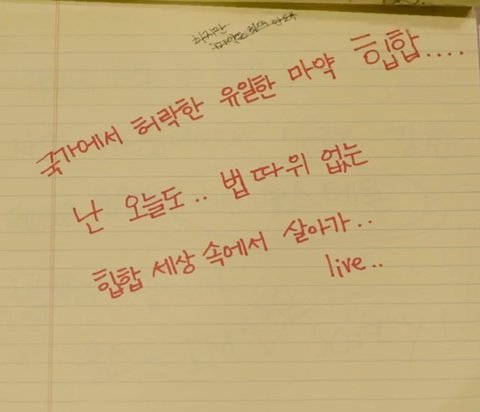 하지만
국가에서 허락한 유일한 마약 힙합....
난 오늘도.. 법따위 없는
힙합 세상 속에서 살아가..
live..